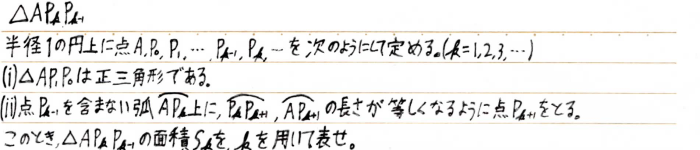 △APₖPₖ₋₁
半径1の円上に点A,P₀,P₁,…Pₖ₋₁,Pₖ,…を次のようにして定める。(k=1,2,3,…)
(i)△AP₁P₀は正三角形である。
(ii)点Pₖ₋₁を含まない弧APₖ上に,PₖPₖ₊₁,APₖ₊₁の長さが等しくなるように点Pₖ₊₁をとる。
このとき,△APₖPₖ₋₁の面積Sₖを,kを用いて表せ。